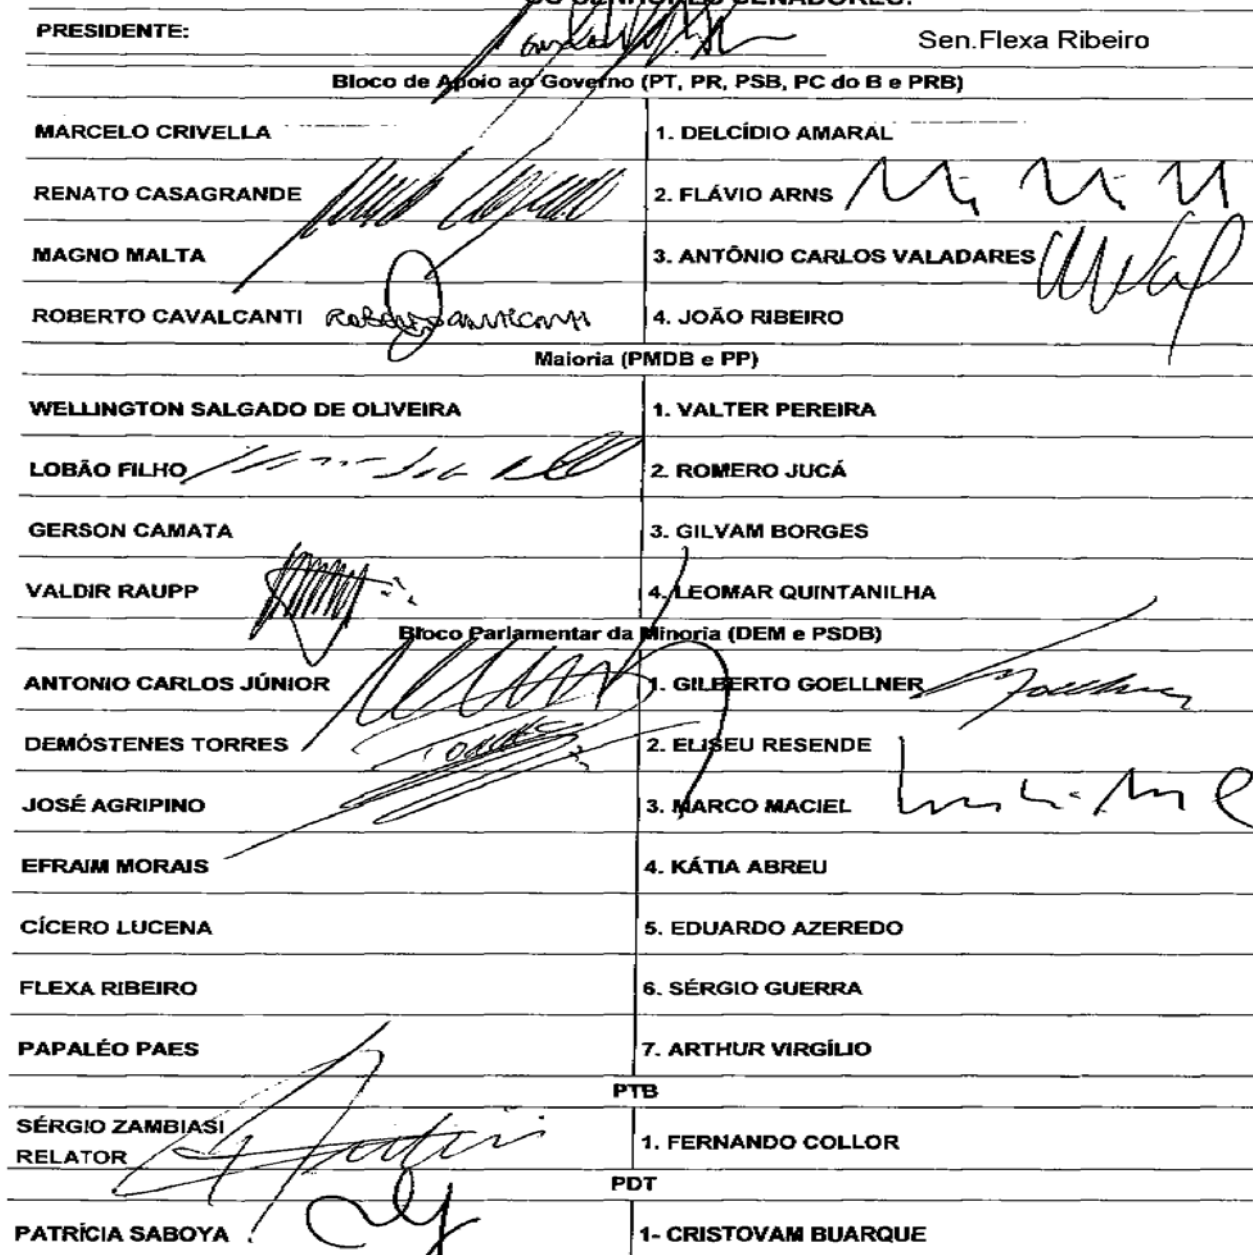 OS SENHORES SENADORES:
PRESIDENTE: Sen.Flexa Ribeiro
Bloco de Apoio ao Governo (PT, PR, PSB, PC do B e PRB)
MARCELO CRIVELLA 1. DELCÍDIO AMARAL
RENATO CASAGRANDE 2. FLÁVIO ARNS
MAGNO MALTA 3. ANTÔNIO CARLOS VALADARES
ROBERTO CAVALCANTI 4. JOÃO RIBEIRO
Maioria (PMDB e PP)
WELLINGTON SALGADO DE OLIVEIRA 1. VALTER PEREIRA
LOBÃO FILHO 2. ROMERO JUCÁ
GERSON CAMATA 3. GILVAM BORGES
VALDIR RAUPP 4. LEOMAR QUINTANILHA
Bloco Parlamentar da Minoria (DEM e PSDB)
ANTONIO CARLOS JÚNIOR 1. GILBERTO GOELLNER
DEMÓSTENES TORRES 2. ELISEU RESENDE
JOSÉ AGRIPINO 3. MARCO MACIEL
EFRAIM MORAIS 4. KÁTIA ABREU
CÍCERO LUCENA 5. EDUARDO AZEREDO
FLEXA RIBEIRO 6. SÉRGIO GUERRA
PAPALÉO PAES 7. ARTHUR VIRGÍLIO
PTB
SÉRGIO ZAMBIASI
RELATOR 1. FERNANDO COLLOR
PDT
PATRÍCIA SABOYA 1- CRISTOVAM BUARQUE